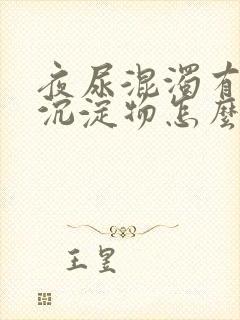 夜尿混濁有
沉淀物怎麼
王昱